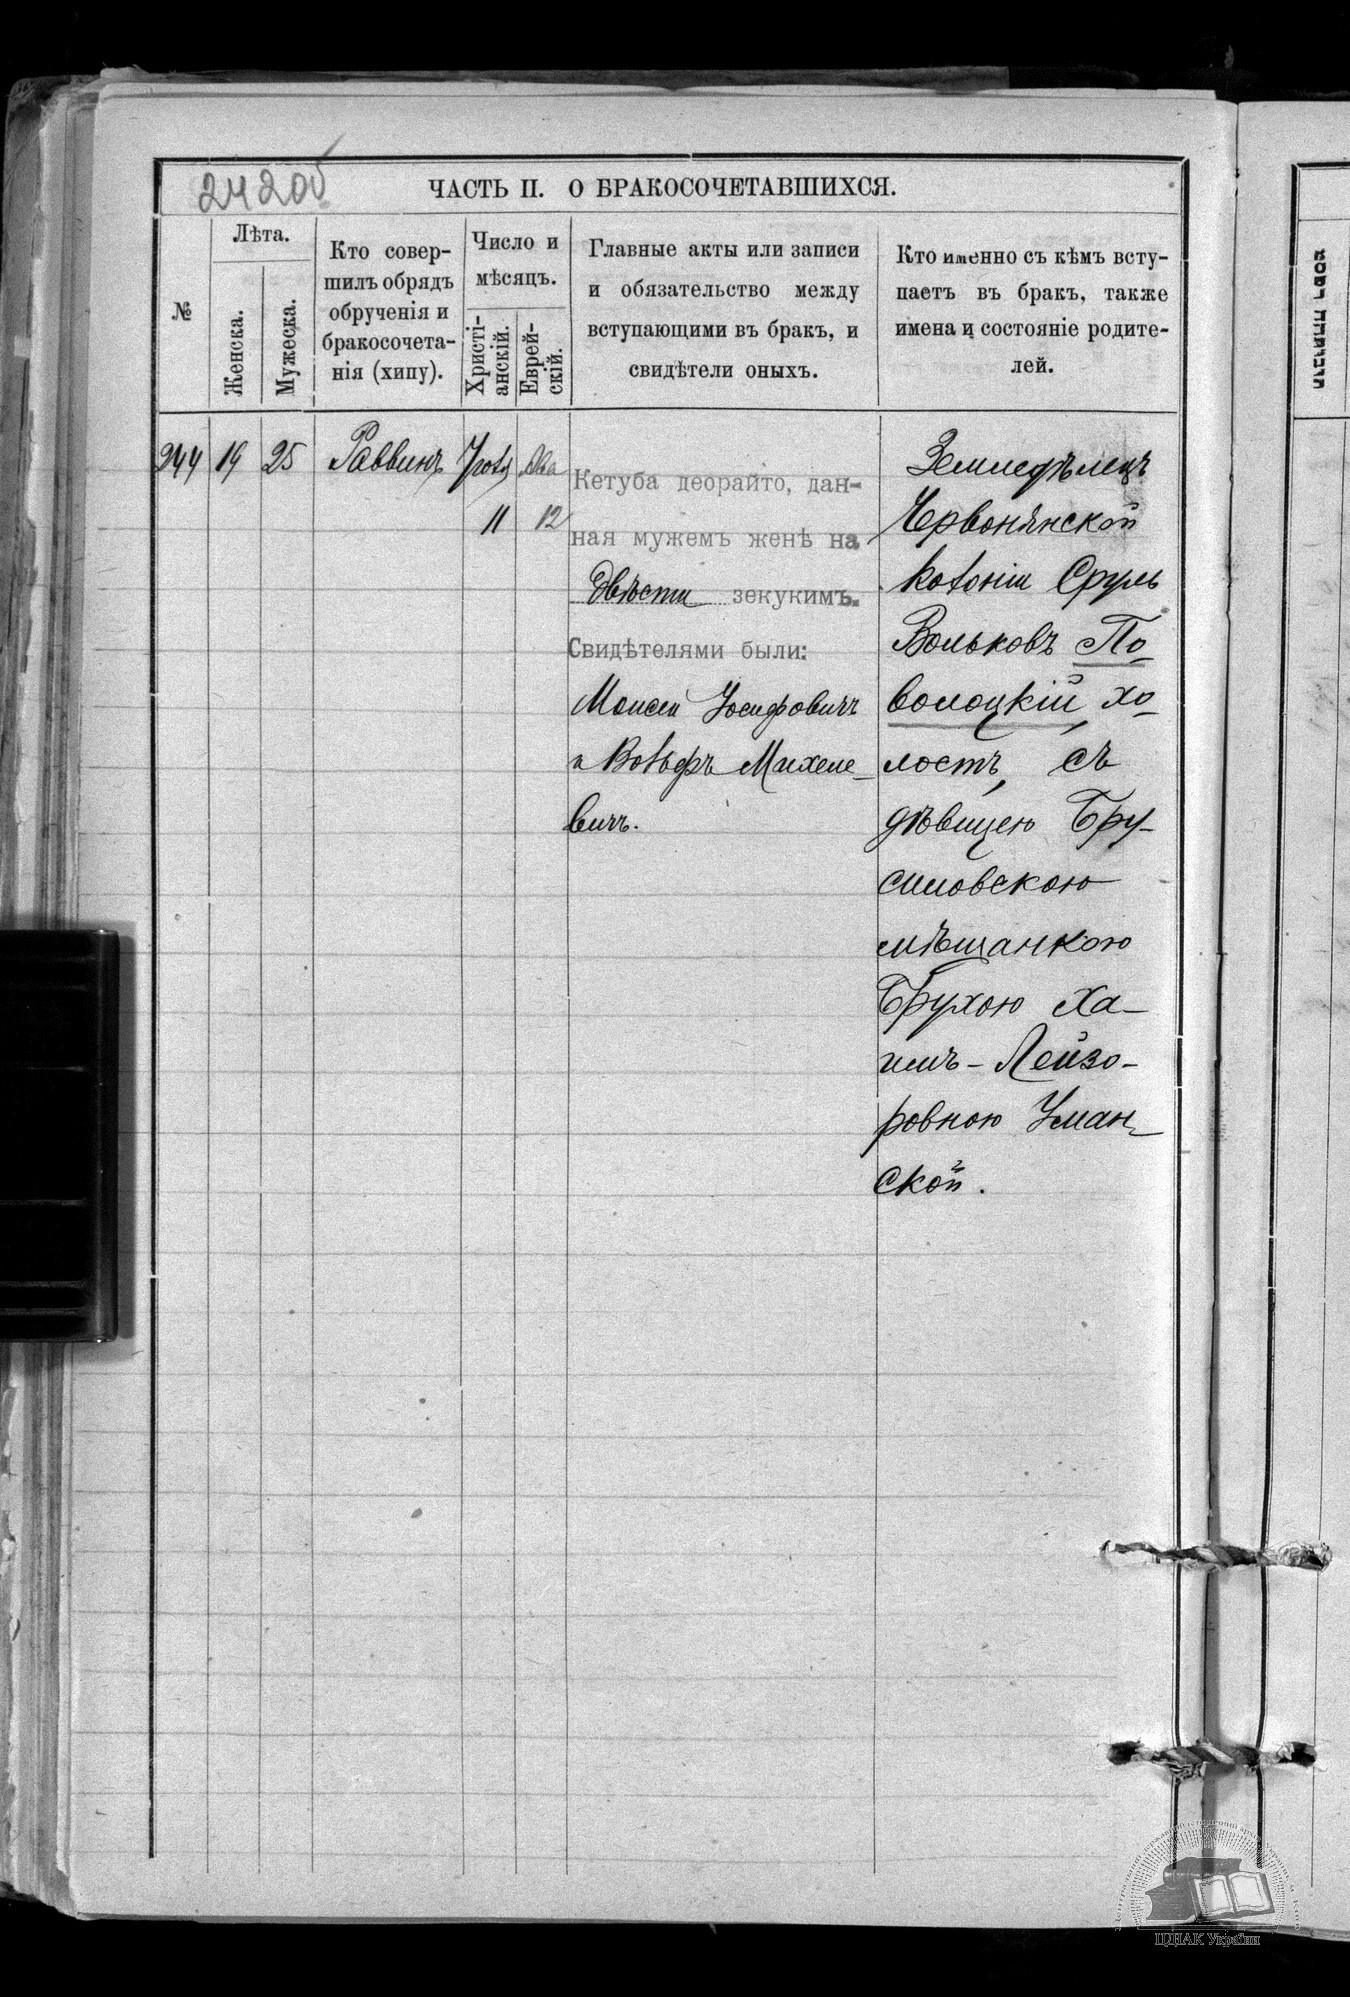 242об
ЧАСТЬ II. О БРАКОСОЧЕТАВШИХСЯ.
№
Лѣта.
Женска.
Мужеска.
Кто совер-
шилъ обрядъ
обрученія и
бракосочета-
нія (хипу).
Число и
мѣсяцъ.
Христі-
анскій.
Еврей-
скій.
Главные акты или записи
и обязательство между
вступающими въ бракъ, и
свидѣтели оныхъ.
Кто именно съ кѣмъ всту-
паетъ въ бракъ, также
имена и состояніе родите-
лей.
244
19
25
Раввинъ
11
Ава
12
Кетуба деорайто, дан-
ная мужемъ женѣ на
двѣсти зекукимъ.
Свидѣтелями были:
Моисей Іосифовичъ
и Вольфъ Михеле-
вичъ.
Земледѣлецъ
Червонянской
колоніи Сруль
Вольковъ По-
волоцкій, хо-
лостъ, съ
дѣвицею Бру-
силовскою
мѣщанкою
Брухою Ха-
имъ-Лейзо-
ровною Уман-
ской.
ЦДІАК України